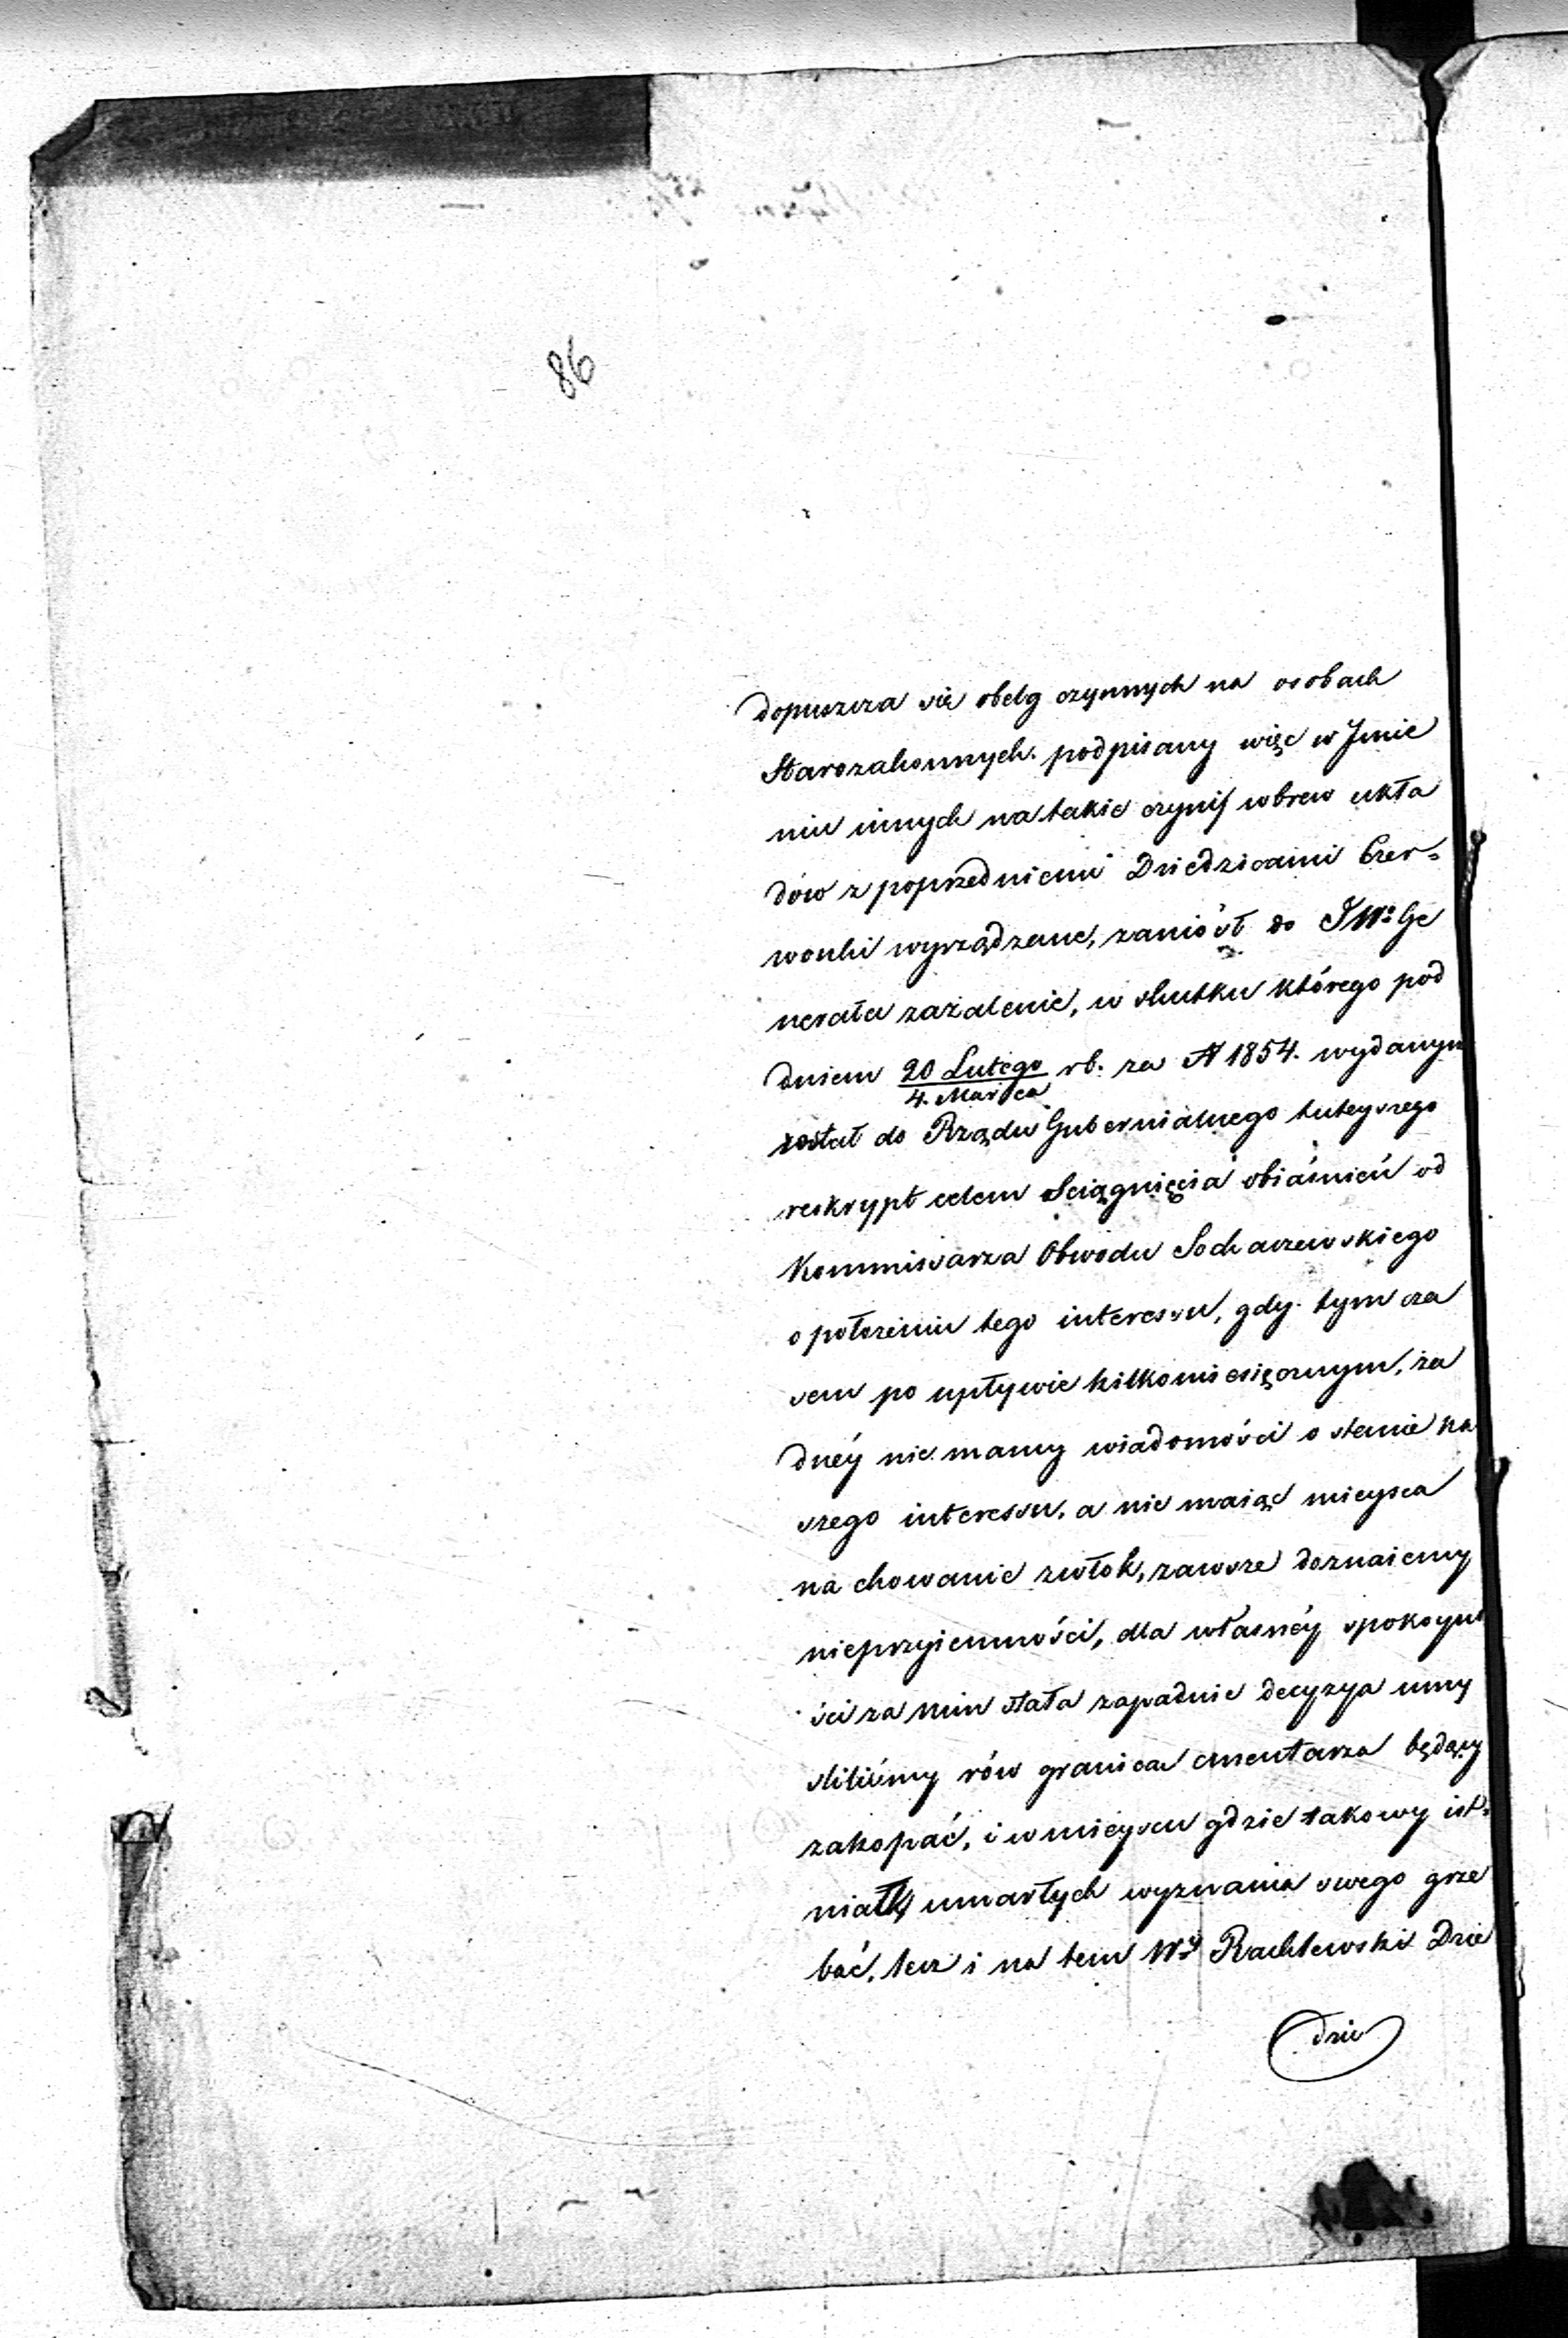 86
dopuszcza się obelg czynnych na osobach
Starozakonnych. podpisany więc w Jmie
niu innych na takie czyny wbrew ukła
dów z poprzedniemi Dziedzicami Czer-
wonki wyrządzane, zaniósł do JWo Ge
nerała zażalenie, w skutku którego pod
dniem 20 Lutego/4. Marca rb. za N 1854. wydanym
został do Rządu Gubernialnego tuteyszego
reskrypt celem sciągnięcia obiaśnień od
Kommissarza Obwodu Sochaczewskiego
o położeniu tego interessu, gdy tym cza
sem po upływie kilkomiesięcznym, ża
dnéy nie mamy wiadomości o stanie na
szego interessu, a nie maiąc mieysca
na chowanie zwłok, zawsze doznaiemy
nieprzyiemności, dla własnéy spokoyno
ści za nim stała zapadnie decyzya umy
śliliśmy rów granicą cmentarza będący
zakopać, i w mieyscu gdzie takowy ist-
niał, umarłych wyznania swego grze
bać, lecz i na tem Wy Rachlewski Dzie
dzic